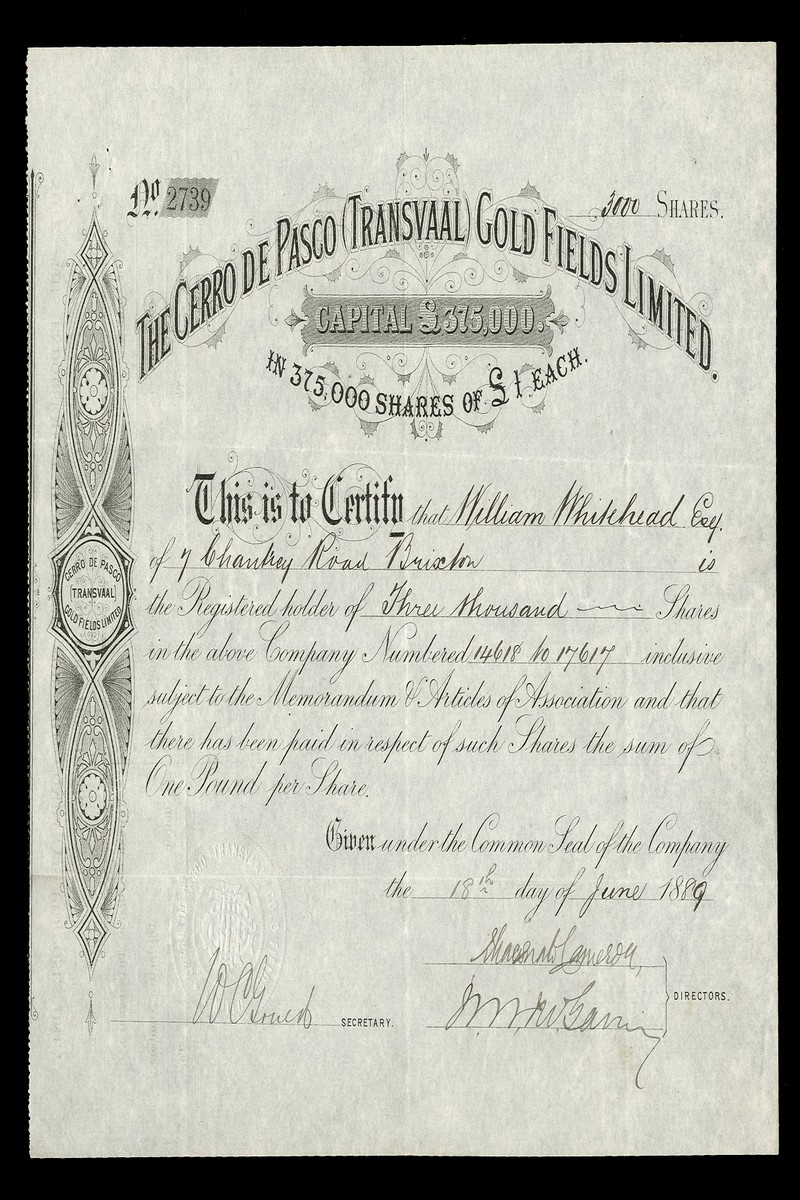 No. 2739
3000 SHARES.
THE CERRO DE PASCO (TRANSVAAL) GOLD FIELDS LIMITED.
CAPITAL £375,000.
IN 375,000 SHARES OF £1 EACH.
This is to Certify that William Whitehead Esq.
of 7 Chantrey Road Brixton is
the Registered holder of Three thousand Shares
in the above Company Numbered 14618 to 17617 inclusive
subject to the Memorandum & Articles of Association and that
there has been paid in respect of such Shares the sum of
One Pound per Share.
Given under the Common Seal of the Company
the 18th day of June 1889
Cameron
DIRECTORS.
SECRETARY.
CERRO DE PASCO
TRANSVAAL
GOLD FIELDS LIMITED